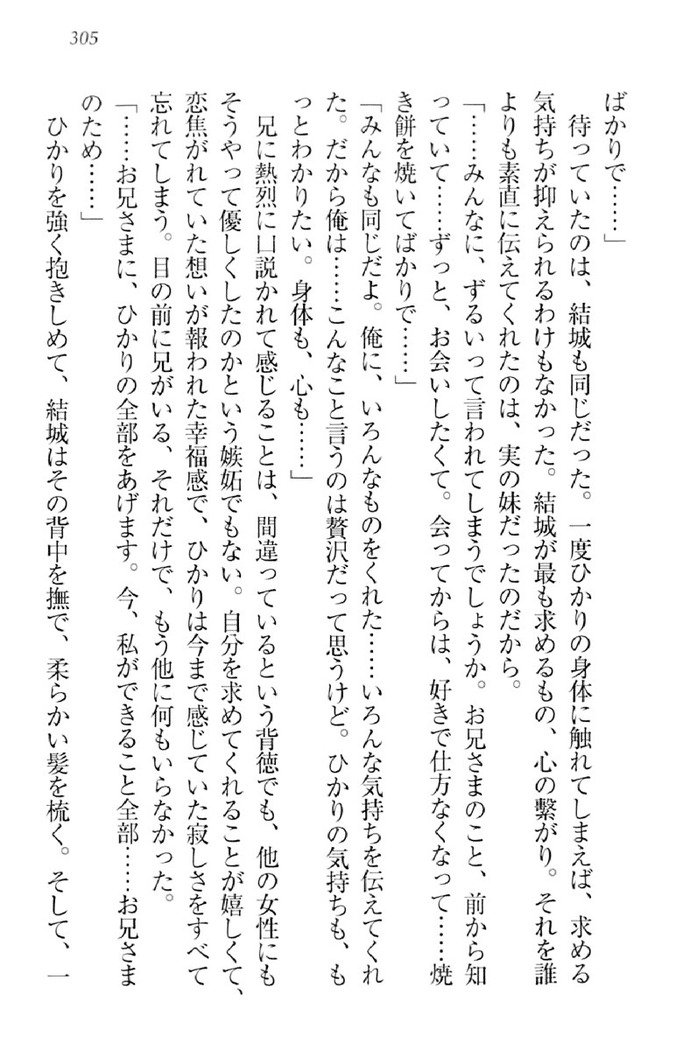 305
ばかりで……」
待っていたのは、結城も同じだった。一度ひかりの身体に触れてしまえば、求める
気持ちが抑えられるわけもなかった。結城が最も求めるもの、心の繋がり。それを誰
よりも素直に伝えてくれたのは、実の妹だったのだから。
「……みんなに、ずるいって言われてしまうでしょうか。お兄さまのこと、前から知
っていて……ずっと、お会いしたくて。会ってからは、好きで仕方なくなって……焼
き餅を焼いてばかりで……」
「みんなも同じだよ。俺に、いろんなものをくれた……いろんな気持ちを伝えてくれ
た。だから俺は……こんなこと言うのは贅沢だって思うけど。ひかりの気持ちも、も
っとわかりたい。身体も、心も……」
兄に熱烈に口説かれて感じることは、間違っているという背徳でも、他の女性にも
そうやって優しくしたのかという嫉妬でもない。自分を求めてくれることが嬉しくて、
恋焦がれていた想いが報われた幸福感で、ひかりは今まで感じていた寂しさをすべて
忘れてしまう。目の前に兄がいる、それだけで、もう他に何もいらなかった。
「……お兄さまに、ひかりの全部をあげます。今、私ができること全部……お兄さま
のため……」
ひかりを強く抱きしめて、結城はその背中を撫で、柔らかい髪を梳く。そして、一